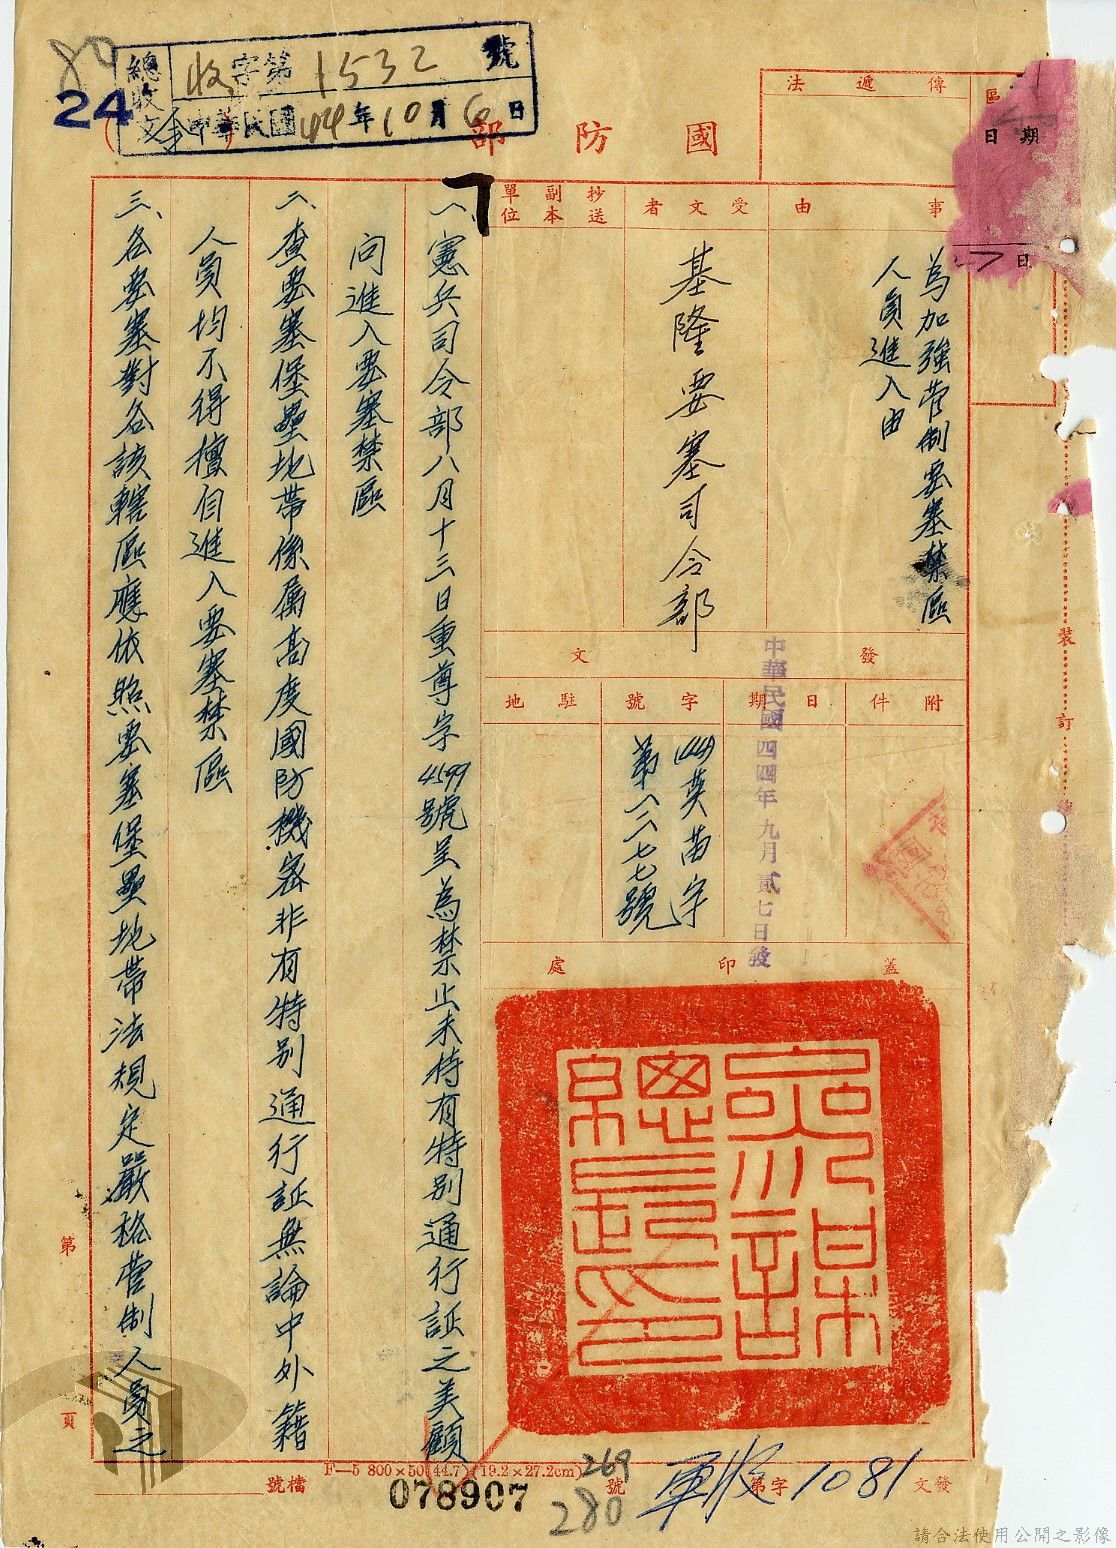 總收文
收字第1532號
中華民國44年10月6日
24
國防部
傳遞法
區
日期
日
事由
為加強管制要塞禁區
人員進入由
受文者
基隆要塞司令部
抄送副本單位
發文
附件
日期
中華民國四四年九月貳七日發
字號
(44)英苗字
第一八七七號
駐地
蓋印處
參謀總長印
一、憲兵司令部八月十三日重尊字4599號呈為禁止未持有特別通行証之美顧
問進入要塞禁區
二、查要塞堡壘地帶係屬高度國防機密非有特別通行証無論中外籍
人員均不得擅自進入要塞禁區
三、各要塞對各該轄區應依照要塞堡壘地帶法規定嚴格管制人員之
裝訂線
第頁
F—5 800×50(44.7)(19.2×27.2cm)
檔號
078907
269
280
發文 字第1081號
軍收
請合法使用公開之影像